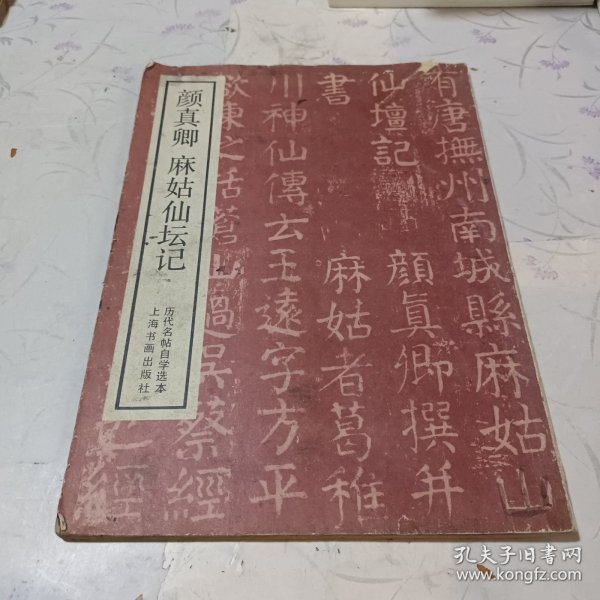 颜真卿 麻姑仙坛记
历代名帖自学选本
上海书画出版社
有唐撫州南城縣麻姑山
仙壇記 顏真卿撰并
書 麻姑者葛稚
川神仙傳云王遠字方平
欲東之括蒼山過吳蔡經
孔夫子旧书网
www.kongfz.com